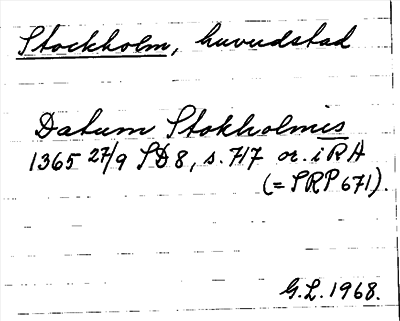 Stockholm, huvudstad
Datum Stokholmis
1365 27/9 SD8, s. 717 or. i RA
(= SRP 671).
G.L. 1968.